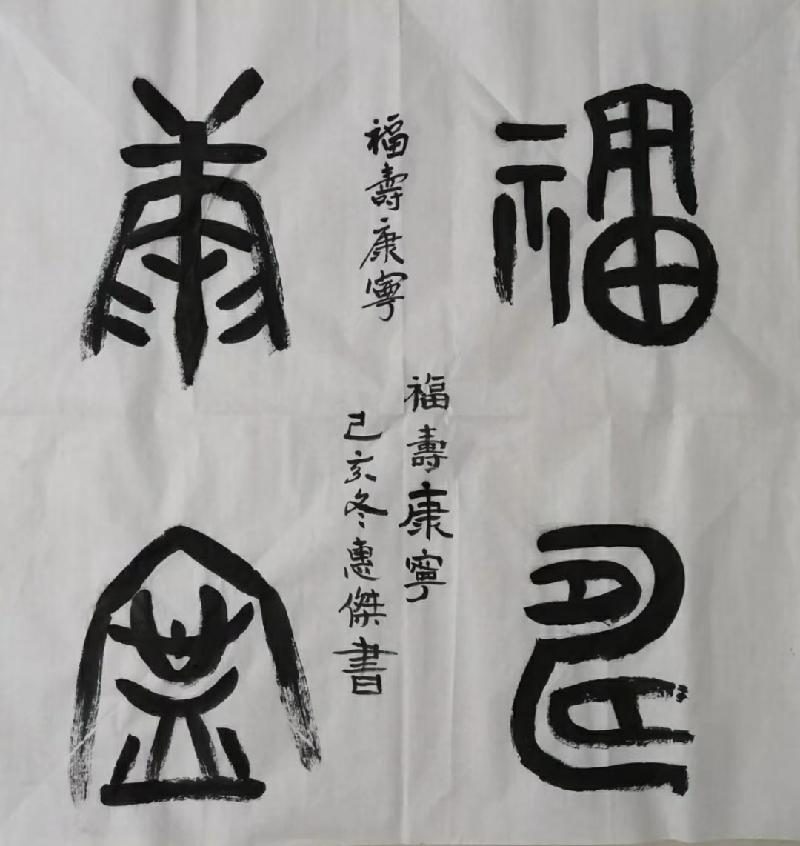 福壽
康寧
福壽康寧
福壽康寧
己亥冬惠傑書